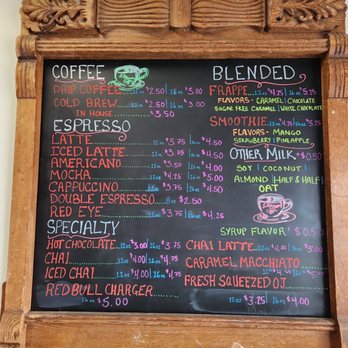 COFFEE
DRIP COFFEE $2.50 | 16 oz $3.00
COLD BREW $2.50 | 16 oz $3.00
IN HOUSE $3.50
ESPRESSO
LATTE 12 oz $3.75 | 16 oz $4.50
ICED LATTE 12 oz $3.75 | 16 oz $4.50
AMERICANO 12 oz $3.50 | 16 oz $4.00
MOCHA 12 oz $4.25 | 16 oz $5.00
CAPPUCCINO 12 oz $3.75 | 16 oz $4.50
DOUBLE ESPRESSO 8 oz $2.50
RED EYE 12 oz $3.75 | 16 oz $4.25
SPECIALTY
HOT CHOCOLATE 12 oz $3.00 | 16 oz $3.75
CHAI 12 oz $4.00 | 16 oz $4.75
ICED CHAI 12 oz $4.00 | 16 oz $4.75
RED BULL CHARGER
16 oz $5.00
BLENDED
FRAPPE 12 oz $4.25 | 16 oz $5.25
FLAVORS - CARAMEL | CHOCOLATE
SUGAR FREE CARAMEL | WHITE CHOCOLATE
SMOOTHIE 12 oz $4.25 | 16 oz $5.25
FLAVORS - MANGO
STRAWBERRY | PINEAPPLE
OTHER MILK + $0.50
SOY | COCONUT |
ALMOND | HALF & HALF |
OAT
SYRUP FLAVOR + $0.50
CHAI LATTE 12 oz $4.25 | 16 oz $5.00
CARAMEL MACCHIATO
12 oz $4.25 | 16 oz $5.00
FRESH SQUEEZED OJ
12 oz $3.25 | 16 oz $4.00